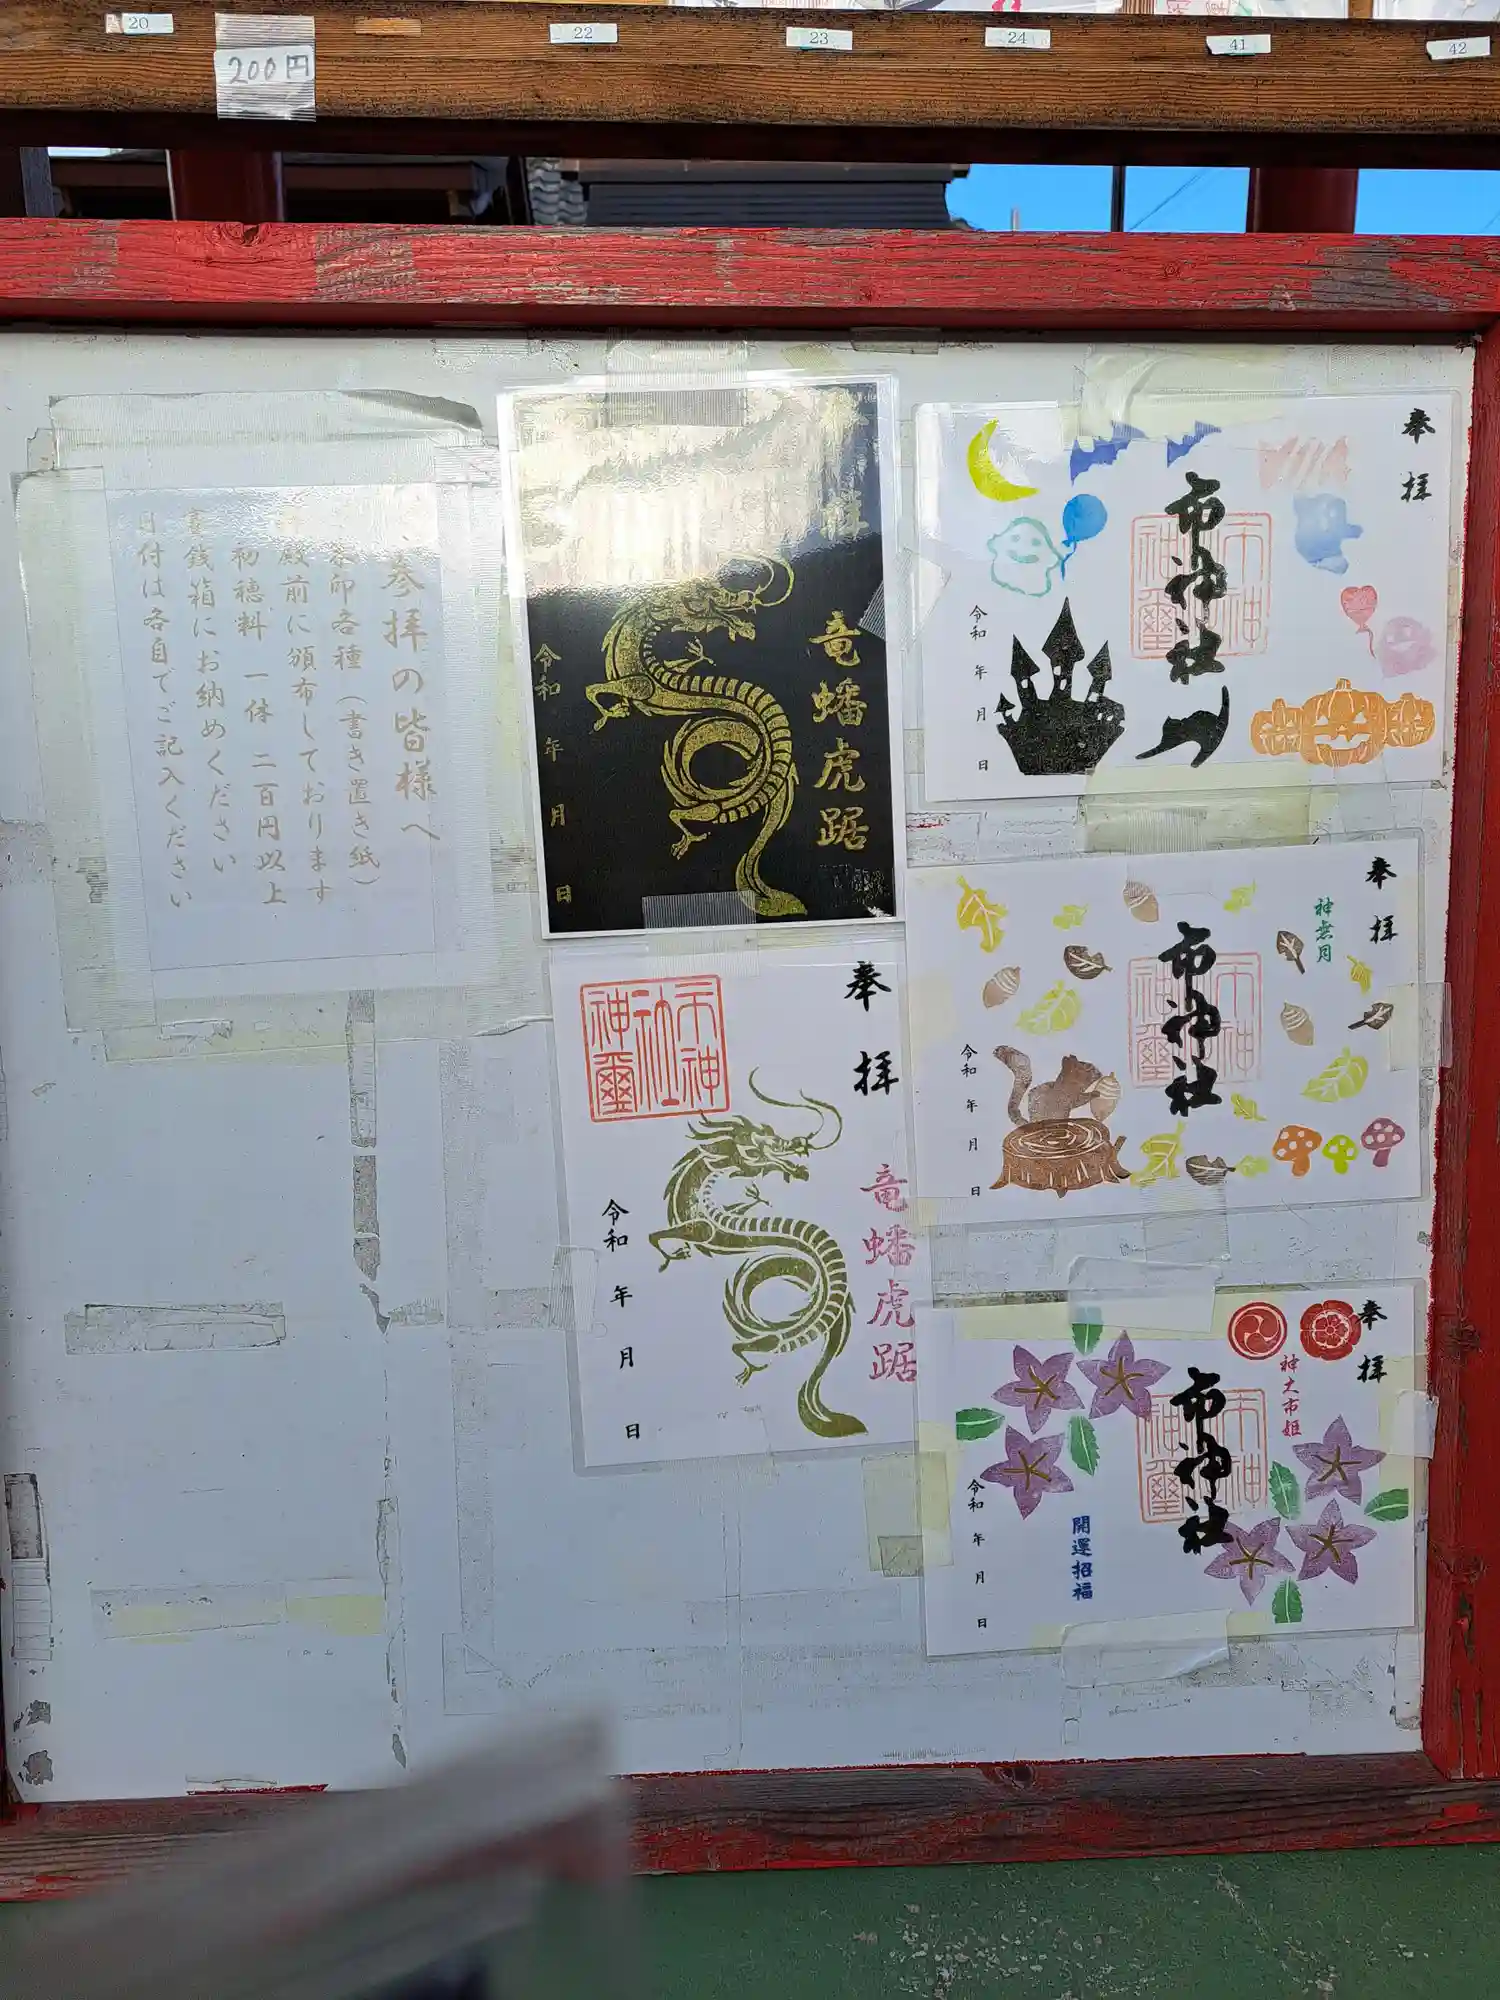 20
200円
22
23
24
41
42
参拝の皆様へ
印各種（書き置き紙）
殿前に頒布しております
初穂料 一体 二百円以上
賽銭箱にお納めください
日付は各自でご記入ください
拝
竜蟠虎踞
令和 年 月 日
奉拝
市神社神璽
竜蟠虎踞
令和 年 月 日
奉拝
市神社
市神社神璽
令和 年 月 日
奉拝
神無月
市神社
市神社神璽
令和 年 月 日
奉拝
神大市姫
市神社
市神社神璽
開運招福
令和 年 月 日